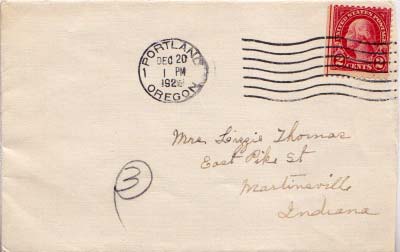 PORTLAND
1
DEC 20
1 PM
OREGON
UNITED STATES POSTAGE
2 CENTS 2
Mrs. Lizzie Thomas
East Pike St
Martinsville
Indiana
3